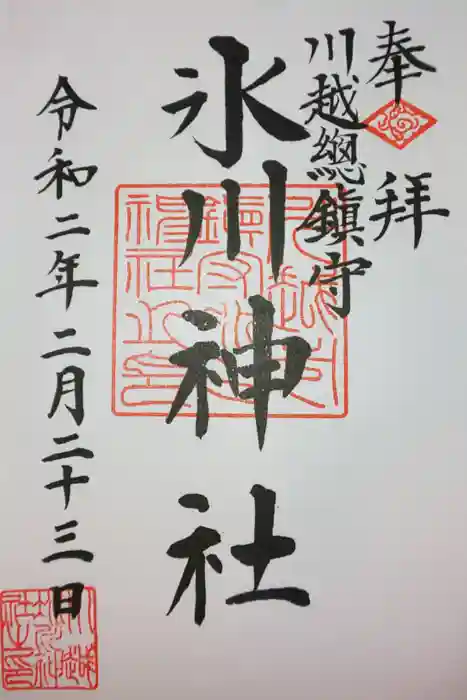 奉拝
川越總鎮守
氷川神社
令和二年二月二十三日